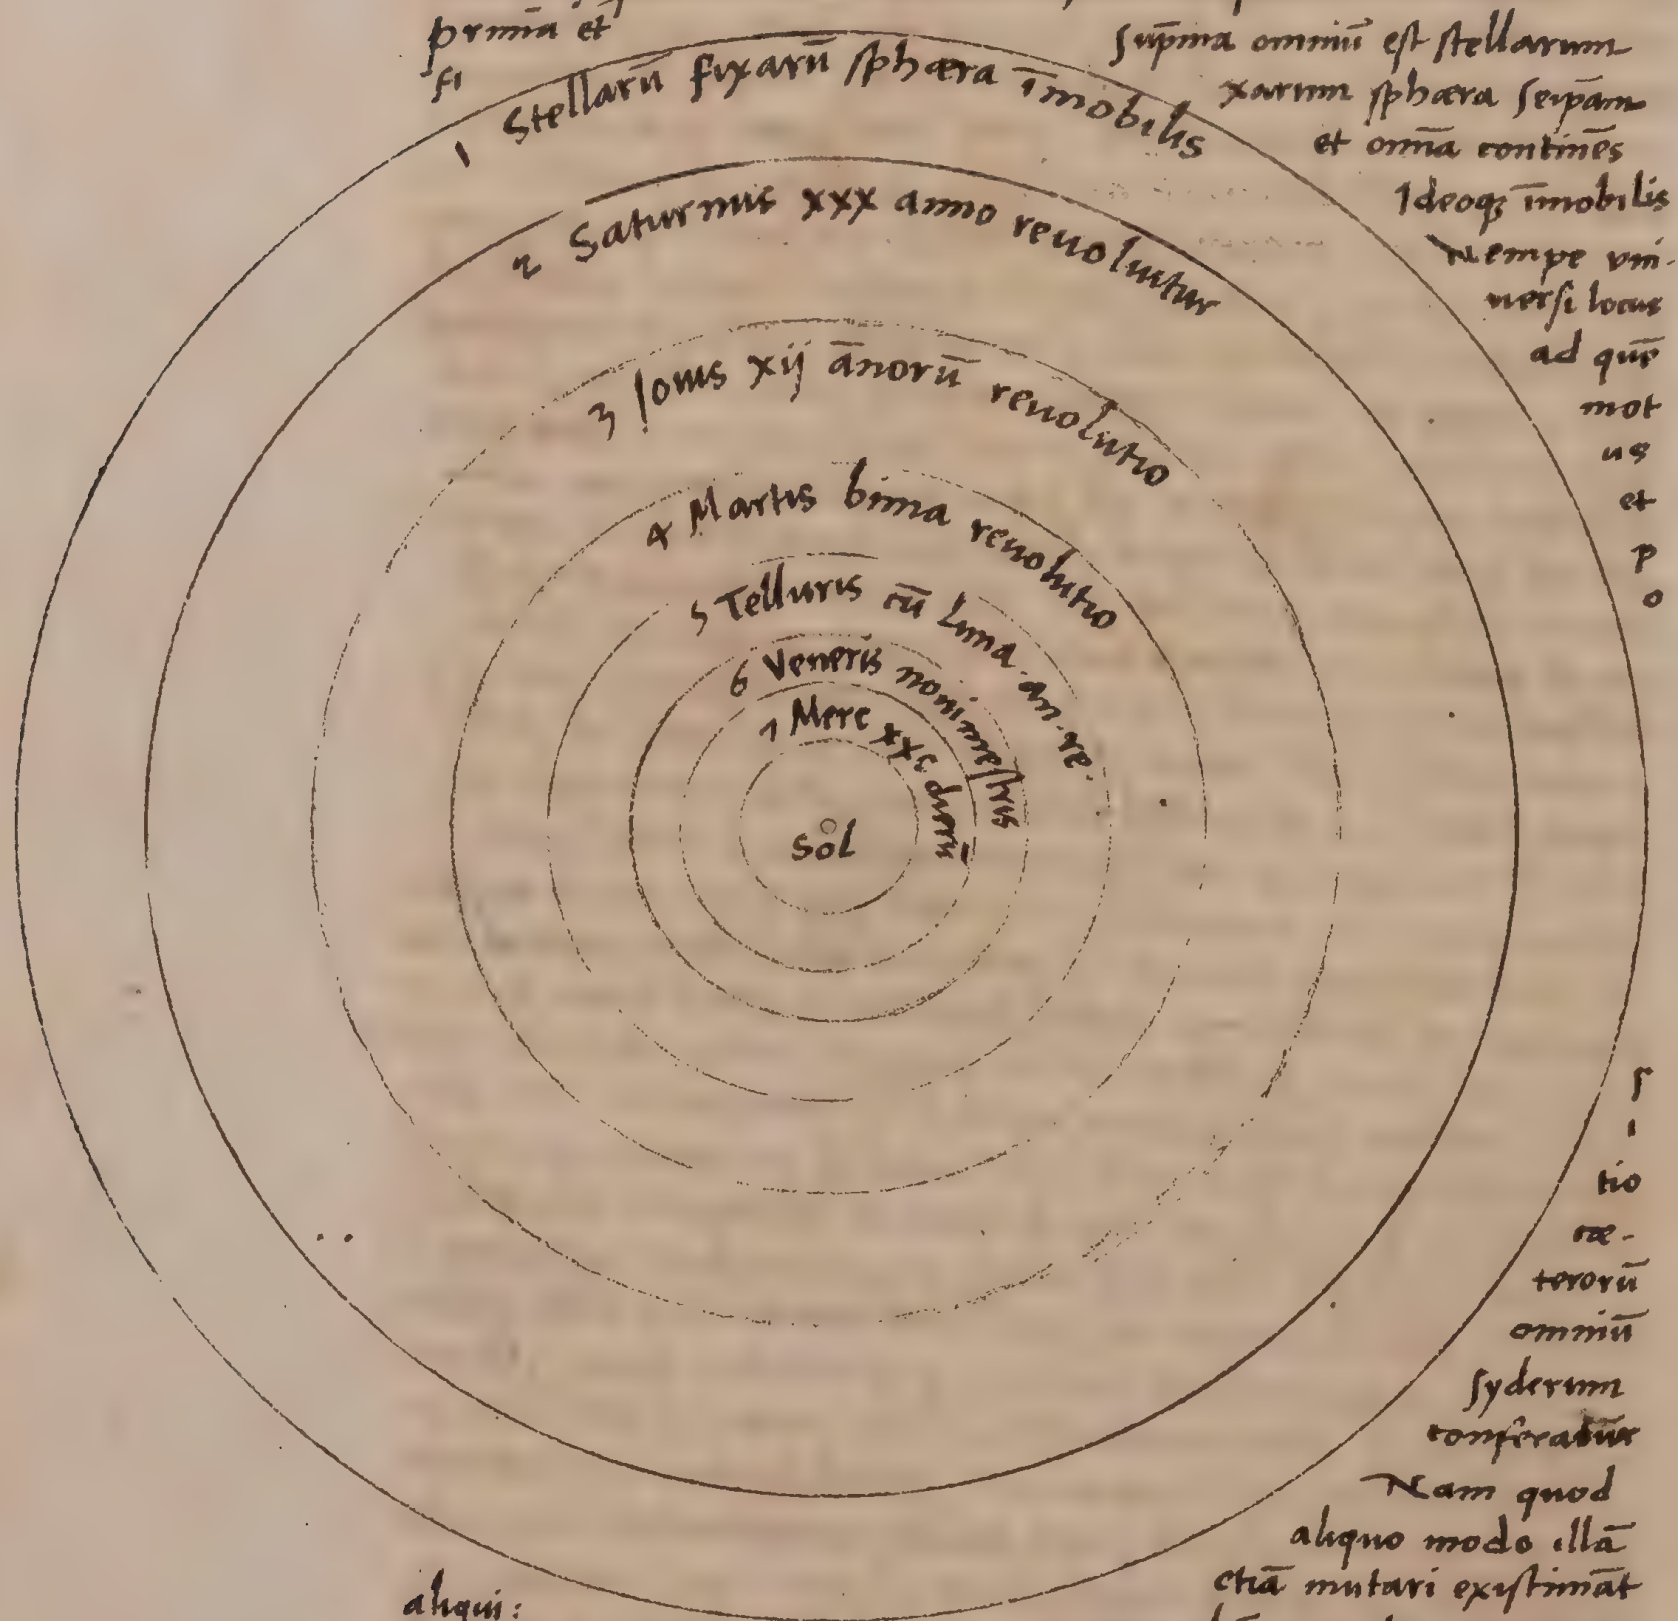 prima et suprema omniū est stellarum
fixarum sphæra seip̄am
et om̄īa continēs
Ideoqȝ īmobilis
Nempe vni-
uersi locus
ad quē
mot
us
et
p
o
s
ı
tio
cæ-
terorū
omniū
syderum
conferatur
Nam quod
aliquo modo illā
etiā mutari existimāt
aliqui:
1 Stellarū fixarū sphæra īmobilis
2 Saturnus xxx anno reuoluitur
3 Iouis xij ānorū reuolutio
4 Martis bima reuolutio
5 Telluris cū Luna an. re.
6 Veneris nonimestris
7 Merc xxc dierū
Sol